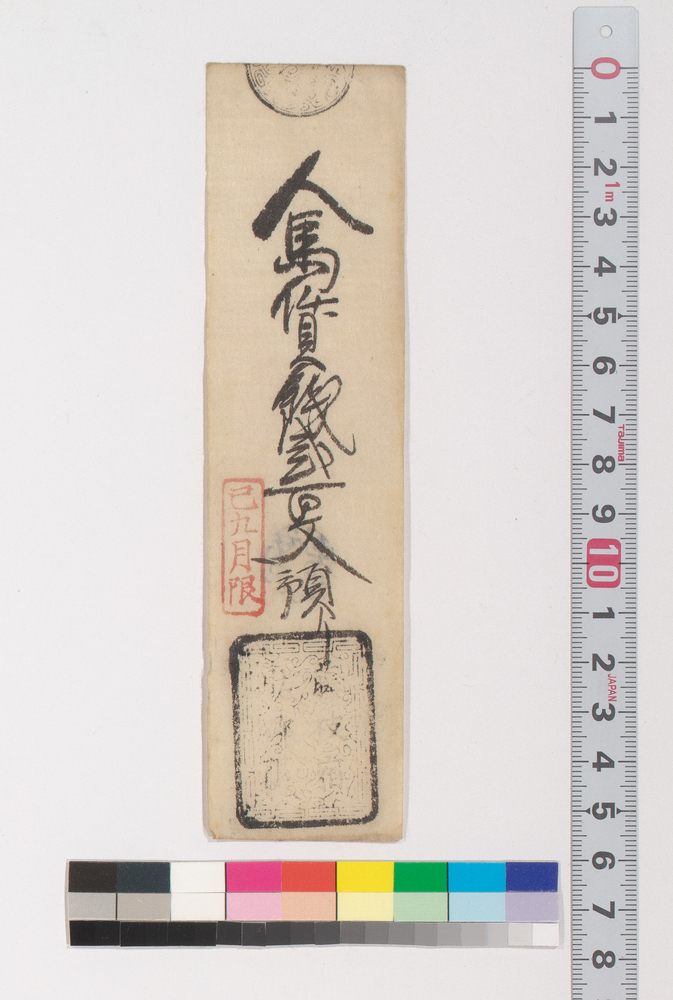 人馬賃銭弐百文預り
己九月限
0
1
2
1m
3
4
5
6
7
Tajima
8
9
10
1
2
JAPAN
3
4
5
6
7
8